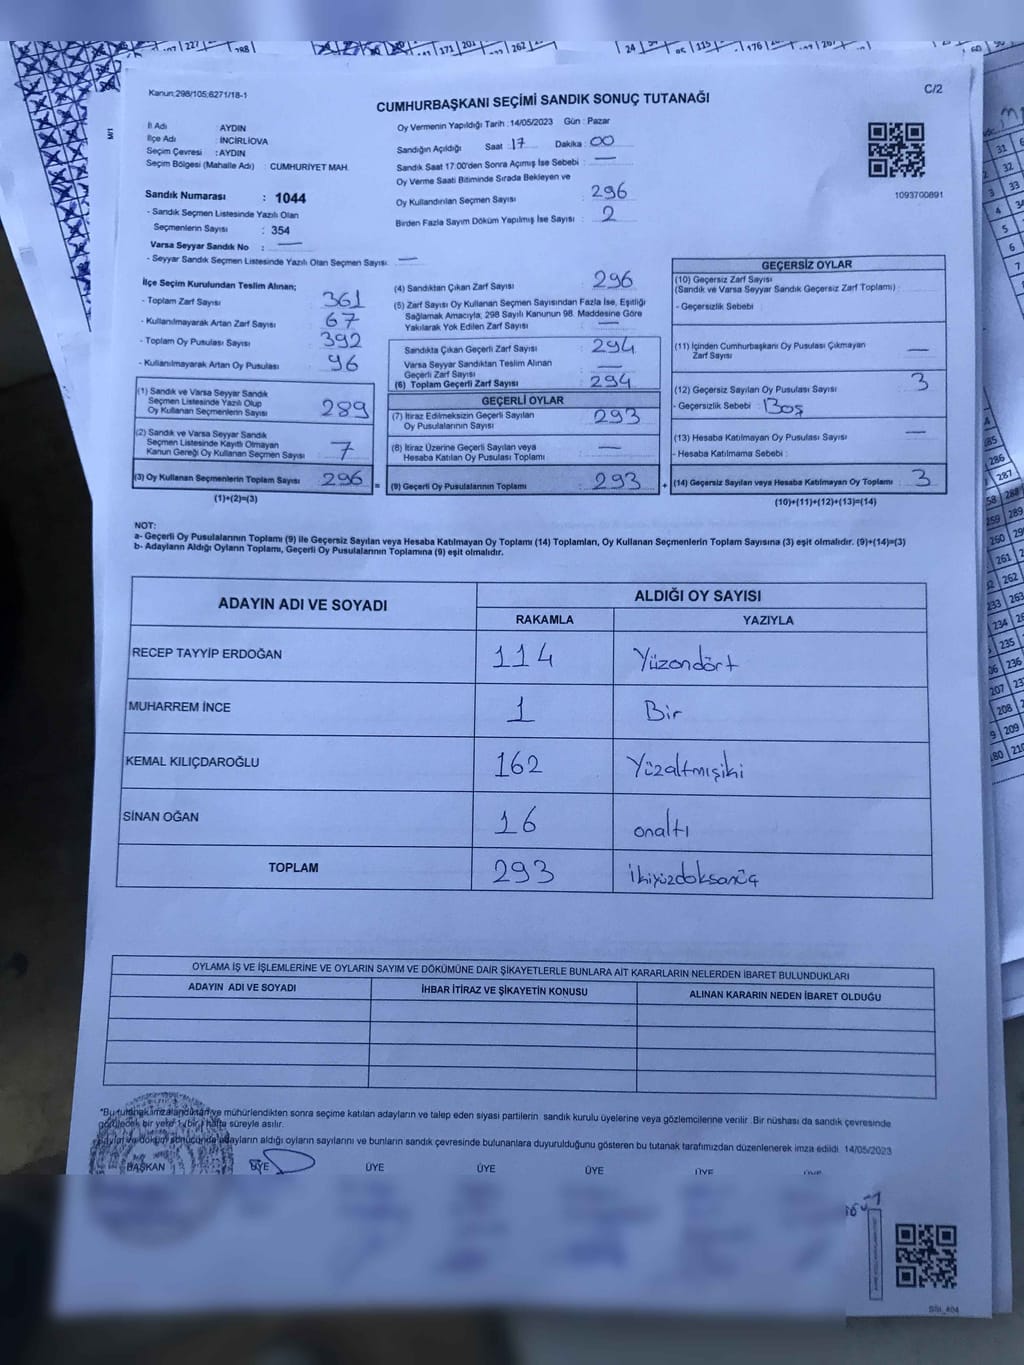 Kanun:298/105;6271/18-1
C/2
CUMHURBAŞKANI SEÇİMİ SANDIK SONUÇ TUTANAĞI
İl Adı AYDIN
İlçe Adı İNCİRLİOVA
Seçim Çevresi : AYDIN
Seçim Bölgesi (Mahalle Adı) : CUMHURİYET MAH.
Sandık Numarası : 1044
- Sandık Seçmen Listesinde Yazılı Olan
Seçmenlerin Sayısı : 354
Varsa Seyyar Sandık No : —
- Seyyar Sandık Seçmen Listesinde Yazılı Olan Seçmen Sayısı: —
Oy Vermenin Yapıldığı Tarih : 14/05/2023 Gün : Pazar
Sandığın Açıldığı Saat : 17 Dakika : 00
Sandık Saat 17:00'den Sonra Açımış İse Sebebi : —
Oy Verme Saati Bitiminde Sırada Bekleyen ve
Oy Kullandırılan Seçmen Sayısı : 296
Birden Fazla Sayım Döküm Yapılmış İse Sayısı : 2
1093700891
İlçe Seçim Kurulundan Teslim Alınan;
- Toplam Zarf Sayısı : 361
- Kullanılmayarak Artan Zarf Sayısı : 67
- Toplam Oy Pusulası Sayısı : 392
- Kullanılmayarak Artan Oy Pusulası : 96
(1) Sandık ve Varsa Seyyar Sandık
Seçmen Listesinde Yazılı Olup
Oy Kullanan Seçmenlerin Sayısı : 289
(2) Sandık ve Varsa Seyyar Sandık
Seçmen Listesinde Kayıtlı Olmayan
Kanun Gereği Oy Kullanan Seçmen Sayısı : 7
(3) Oy Kullanan Seçmenlerin Toplam Sayısı : 296
(1)+(2)=(3)
(4) Sandıktan Çıkan Zarf Sayısı : 296
(5) Zarf Sayısı Oy Kullanan Seçmen Sayısından Fazla İse, Eşitliği
Sağlamak Amacıyla; 298 Sayılı Kanunun 98. Maddesine Göre
Yakılarak Yok Edilen Zarf Sayısı : —
Sandıkta Çıkan Geçerli Zarf Sayısı : 294
Varsa Seyyar Sandıktan Teslim Alınan
Geçerli Zarf Sayısı : —
(6) Toplam Geçerli Zarf Sayısı : 294
GEÇERLİ OYLAR
(7) İtiraz Edilmeksizin Geçerli Sayılan
Oy Pusulalarının Sayısı : 293
(8) İtiraz Üzerine Geçerli Sayılan veya
Hesaba Katılan Oy Pusulası Toplamı : —
= (9) Geçerli Oy Pusulalarının Toplamı : 293
GEÇERSİZ OYLAR
(10) Geçersiz Zarf Sayısı
(Sandık ve Varsa Seyyar Sandık Geçersiz Zarf Toplamı) :
- Geçersizlik Sebebi :
(11) İçinden Cumhurbaşkanı Oy Pusulası Çıkmayan
Zarf Sayısı : —
(12) Geçersiz Sayılan Oy Pusulası Sayısı : 3
- Geçersizlik Sebebi : Boş
(13) Hesaba Katılmayan Oy Pusulası Sayısı : —
- Hesaba Katılmama Sebebi :
+ (14) Geçersiz Sayılan veya Hesaba Katılmayan Oy Toplamı : 3
(10)+(11)+(12)+(13)=(14)
NOT:
a- Geçerli Oy Pusulalarının Toplamı (9) ile Geçersiz Sayılan veya Hesaba Katılmayan Oy Toplamı (14) Toplamları, Oy Kullanan Seçmenlerin Toplam Sayısına (3) eşit olmalıdır. (9)+(14)=(3)
b- Adayların Aldığı Oyların Toplamı, Geçerli Oy Pusulalarının Toplamına (9) eşit olmalıdır.
ADAYIN ADI VE SOYADI ALDIĞI OY SAYISI
RAKAMLA YAZIYLA
RECEP TAYYİP ERDOĞAN 114 Yüzondört
MUHARREM İNCE 1 Bir
KEMAL KILIÇDAROĞLU 162 Yüzaltmışiki
SİNAN OĞAN 16 onaltı
TOPLAM 293 ikiyüzdoksanüç
OYLAMA İŞ VE İŞLEMLERİNE VE OYLARIN SAYIM VE DÖKÜMÜNE DAİR ŞİKAYETLERLE BUNLARA AİT KARARLARIN NELERDEN İBARET BULUNDUKLARI
ADAYIN ADI VE SOYADI İHBAR İTİRAZ VE ŞİKAYETİN KONUSU ALINAN KARARIN NEDEN İBARET OLDUĞU
*Bu tutanak imzalandıktan ve mühürlendikten sonra seçime katılan adayların ve talep eden siyasi partilerin sandık kurulu üyelerine veya gözlemcilerine verilir. Bir nüshası da sandık çevresinde
görülecek bir yere 1 (bir) hafta süreyle asılır.
sayım ve döküm sonucunda adayların aldığı oyların sayılarını ve bunların sandık çevresinde bulunanlara duyurulduğunu gösteren bu tutanak tarafımızdan düzenlenerek imza edildi. 14/05/2023
BAŞKAN ÜYE ÜYE ÜYE ÜYE ÜYE